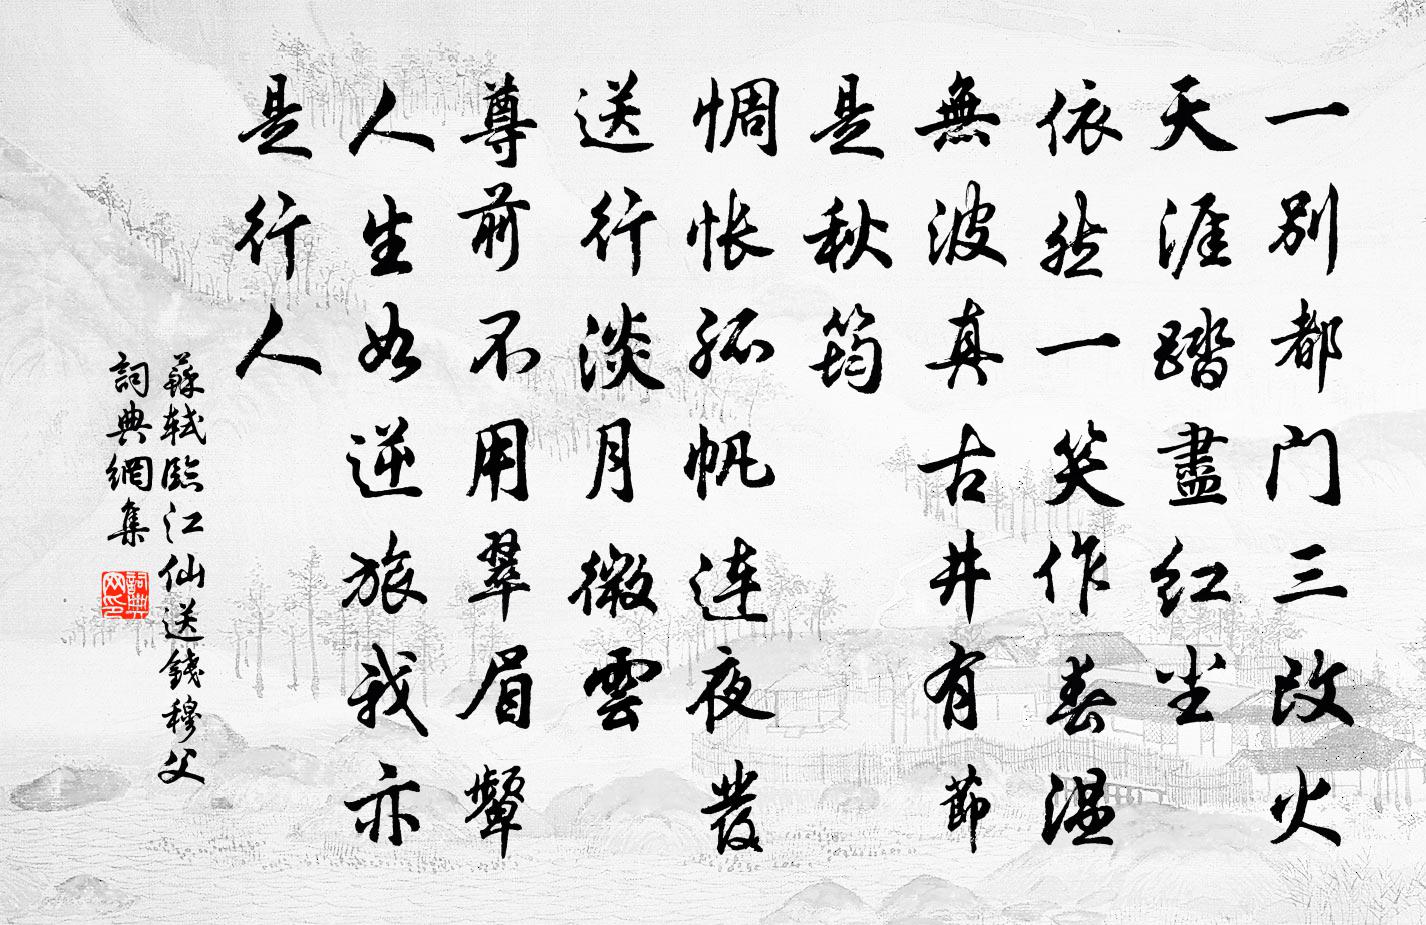 一别都门三改火
天涯踏盡红尘
依然一笑作春温
無波真古井有莭
是秋筠
惆怅孤帆连夜發
送行淡月微雲
尊前不用翠眉顰
人生如逆旅我亦
是行人
蘇軾臨江仙送錢穆父
詞典網集
詞典网印